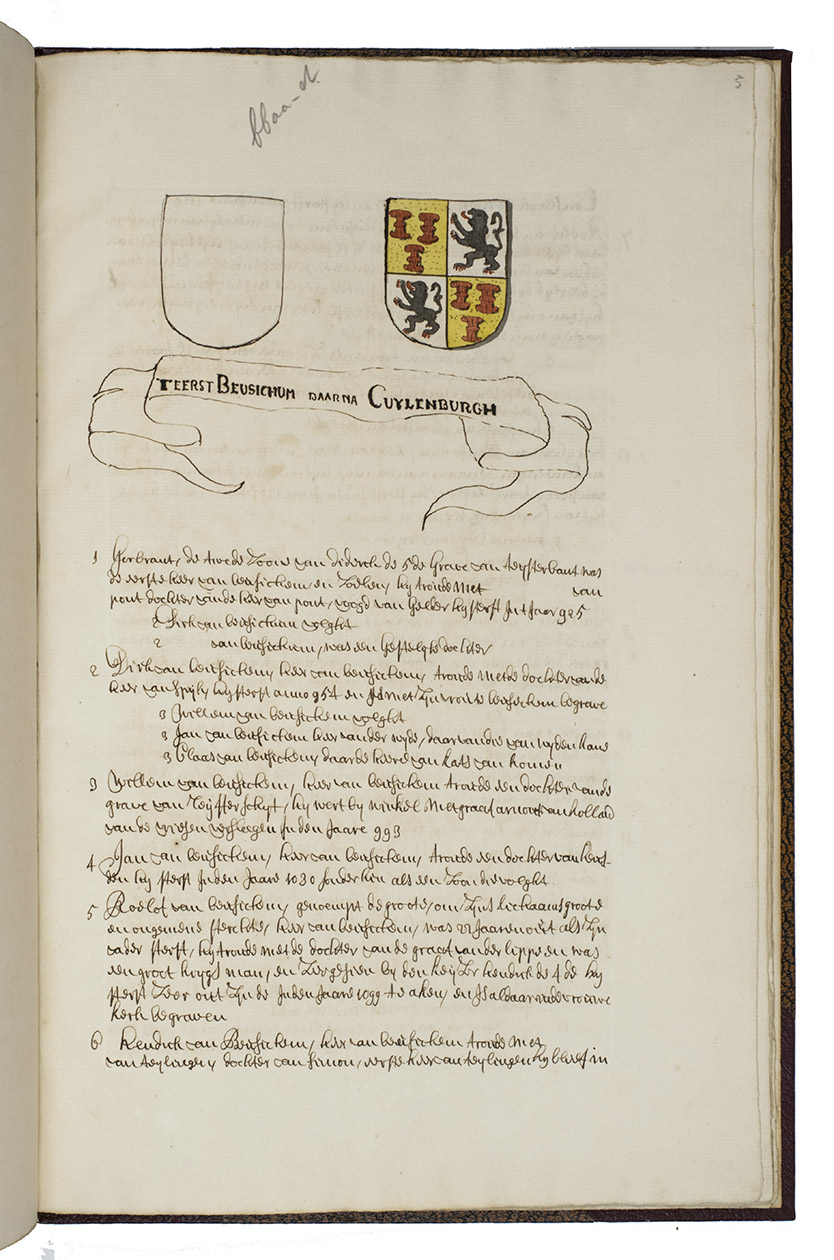 5
TEERST BEUSICHUM DAARNA CUYLENBURGH
1 Gerbrant, de twede Zoone van diderck de 5de Grave van teysterbant was
de eerste heer van beusichem, en Zoelen, hy troude Met van
pont dochter vande heer van pont, voogd van Gelder hy sterft Int Jaar 925
2 Dirk van beusichem volght
2 van beusichem, was een Gestelyke dochter
2 Dirk van beusichem, heer van beusichem, troude Met de dochter vande
heer van Spyk, hy sterft anno 954 en is Met Zyn vrou te beusichem begrave
3 Willem van beusichem volght
3 Jan van beusichem heer vander wyde, daar van die van
3 Claas van beusichem, daar de heere van kats van komen
3 Willem van beusichem, heer van beusichem troude een dochter vande
grave van Zuyster, hy wert by winkel Met graaf arnout van holland
van de vriesen verslagen In den Jaare 993
4 Jan van beusichem, heer van beusichem, troude een dochter van heus-
den hy sterft Inden Jaare 1030 Zoon die volght
5 Roelof van beusichem, genoempt de groote, om Zyns lichaams groote
en ongemene sterckte, heer van beusichem, was 22 Jaaren out als Zyn
vader sterft, hy troude Met de dochter van de graaf vander lippe en was
een groot krygs man, en Zeer gesien by den keyzer hendrick de 4de hy
sterft Zeer outt Zynde Inden Jaare 1099 te aken, en Is aldaar vrouwe
kerk begraven
6 Hendrick van Beusichem, heer van beusichem troude Met
van teylingen, dochter van simon, eerste heer van teylingen hy bleef in